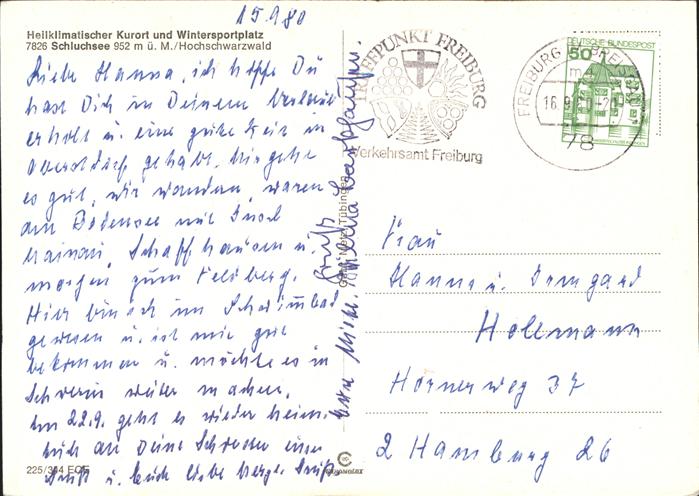 15.9.80
Heilklimatischer Kurort und Wintersportplatz
7826 Schluchsee 952 m ü. M./Hochschwarzwald
Liebe Hanna, ich hoffe Du
hast Dich in Deinem Urlaub
erholt u. eine gute Zeit in
gehabt. Mir gehe
es gut, wir wandern, waren
am Bodensee mit Insel
Mainau, Schaffhausen u.
morgen zum Feldberg.
Hier bin ich im Schwimmbad
gewesen u. ist mir gut
bekommen u. möchte es in
Schwerin weiter machen.
Am 22.9. geht es wieder heim.
auch an Deine Schwester einen
Gruß u. Euch liebe herzl. Grüße
Gruß
TREFFPUNKT FREIBURG
Verkehrsamt Freiburg
FREIBURG IM BREI
16.9.
78
DEUTSCHE BUNDESPOST
50
Frau
Hanna u. Irmgard
Holtmann
Horner weg 37
2 Hamburg 26
225/344 ECE